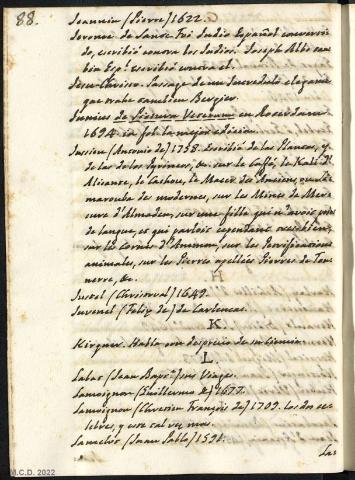 88.
Jeannin (Pierre) 1622.
Jeronimo de Santa Fé Judio Español convertido,
escribió contra los Judios. Joseph Albo tambien
Espl. escribió contra el.
Jesu-Christo. Passage de un Incredulo elegante
que trahe tambien Bergier.
Junius de Pictura Veterum en Roterdam
1694. in fol. la mejor edicion.
Jussieu (Antonio de) 1758. Escribió de las Plantas, y
de las de los Pyrineos, &c. sur le Caffé, le Kali d'
Alicante, le Cachou, le Macer des Anciens, ou Si
marouba des modernes, sur les Mines de Mercure
d'Almaden, sur une fille qui n'avoit point
de langue, et qui parloit cependant
sur les cornes d'Ammon, sur les Petrifications
animales, sur les Pierres apellées Pierres de Tonnerre,
&c.
Justel (Christoval) 1649.
Juvenel (Felix de) de Carlencas.
K.
Kirguer. Habla con desprecio de su Ciencia.
L.
Labat (Juan Bapta.) sus Viages.
Lamoignon (Guillermo de) 1677.
Lamoignon (Chretien François de) 1709. Los dos celebres,
y este tal vez mas.
Lancelot (Juan Pablo) 1591.
M.C.D. 2022